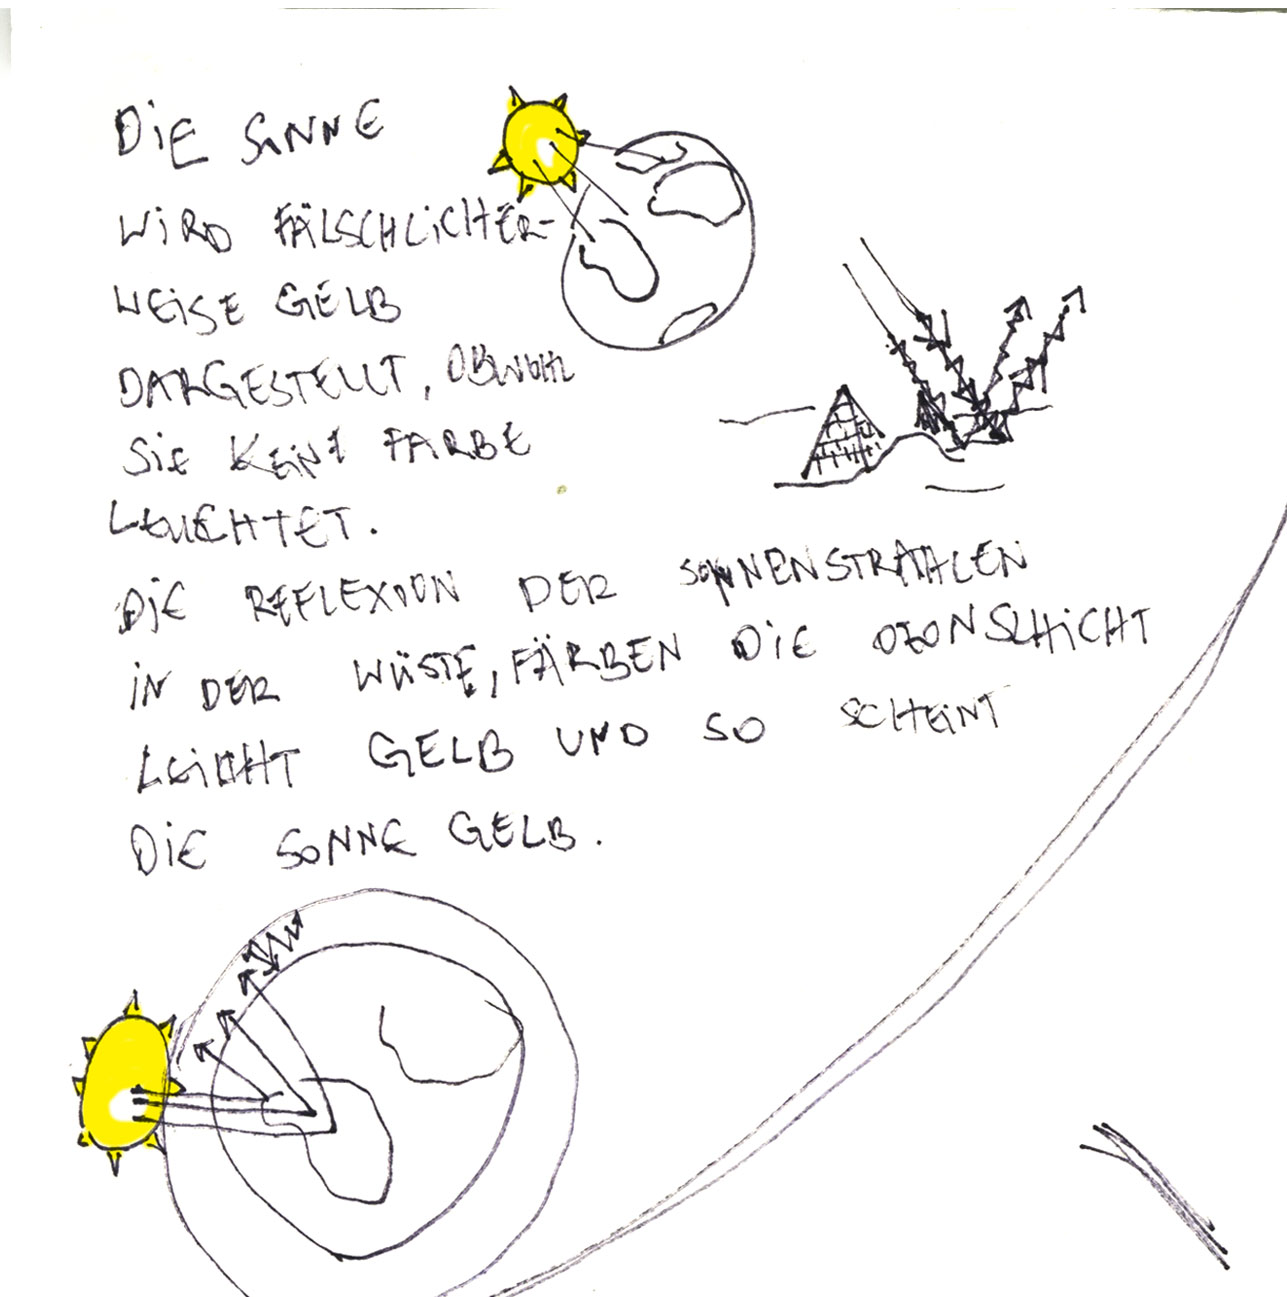 DIE SONNE
WIRD FÄLSCHLICHER-
WEISE GELB
DARGESTELLT, OBWOHL
SIE KEINE FARBE
LEUCHTET.
DIE REFLEXION DER SONNENSTRAHLEN
IN DER WÜSTE, FÄRBEN DIE OZONSCHICHT
LEICHT GELB UND SO SCHEINT
DIE SONNE GELB.